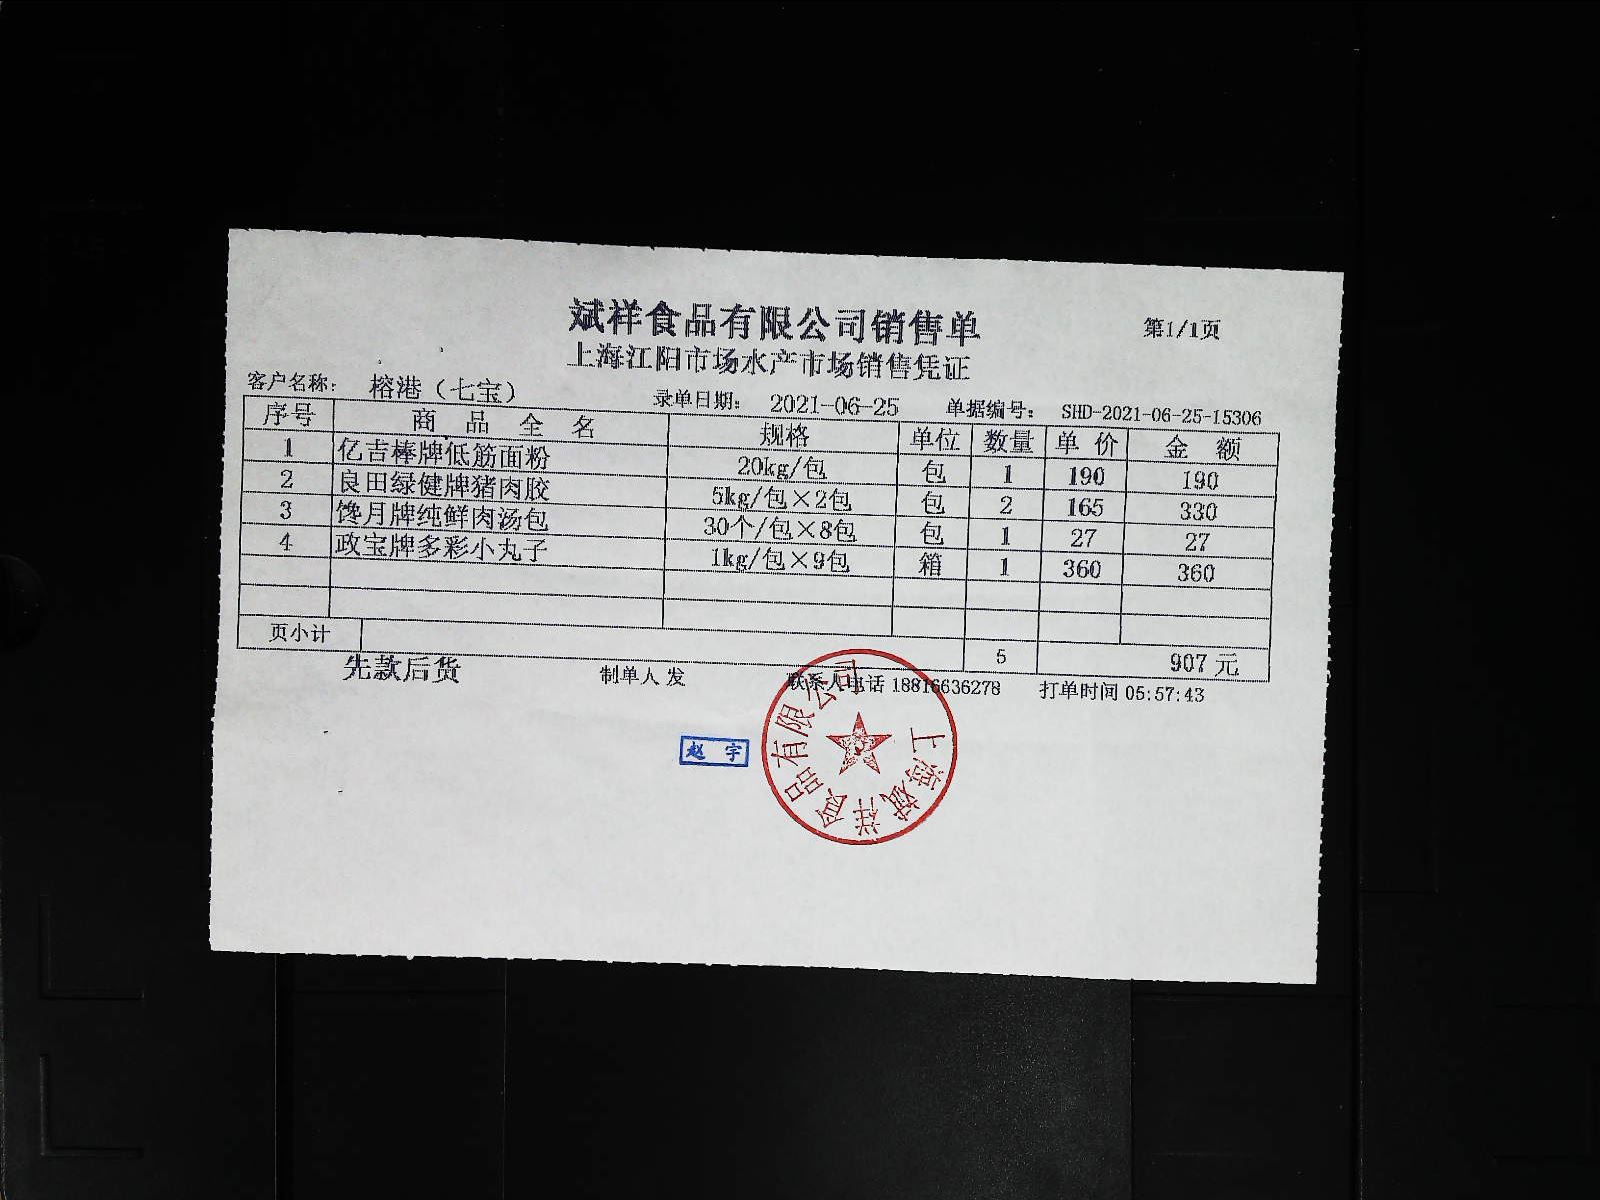 斌祥食品有限公司销售单
第1/1页
上海江阳市场水产市场销售凭证
客户名称： 榕港（七宝） 录单日期： 2021-06-25 单据编号： SHD-2021-06-25-15306
序号 商品全名 规格 单位 数量 单价 金额
1 亿吉棒牌低筋面粉 20kg/包 包 1 190 190
2 良田绿健牌猪肉胶 5kg/包×2包 包 2 165 330
3 馋月牌纯鲜肉汤包 30个/包×8包 包 1 27 27
4 政宝牌多彩小丸子 1kg/包×9包 箱 1 360 360
页小计 5 907 元
先款后货 制单人 发 联系人电话 18816636278 打单时间 05:57:43
赵宇
上海斌祥食品有限公司